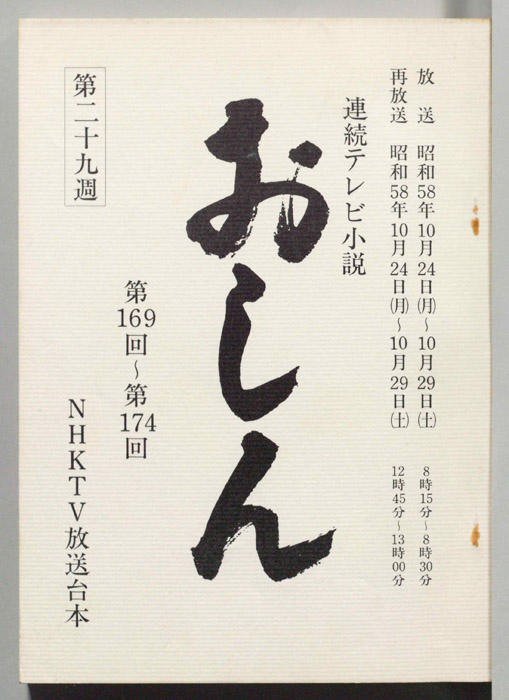 放送 昭和58年10月24日(月)~10月29日(土) 8時15分~8時30分
再放送 昭和58年10月24日(月)~10月29日(土) 12時45分~13時00分
連続テレビ小説
おしん
第169回~第174回
第二十九週
NHKTV放送台本